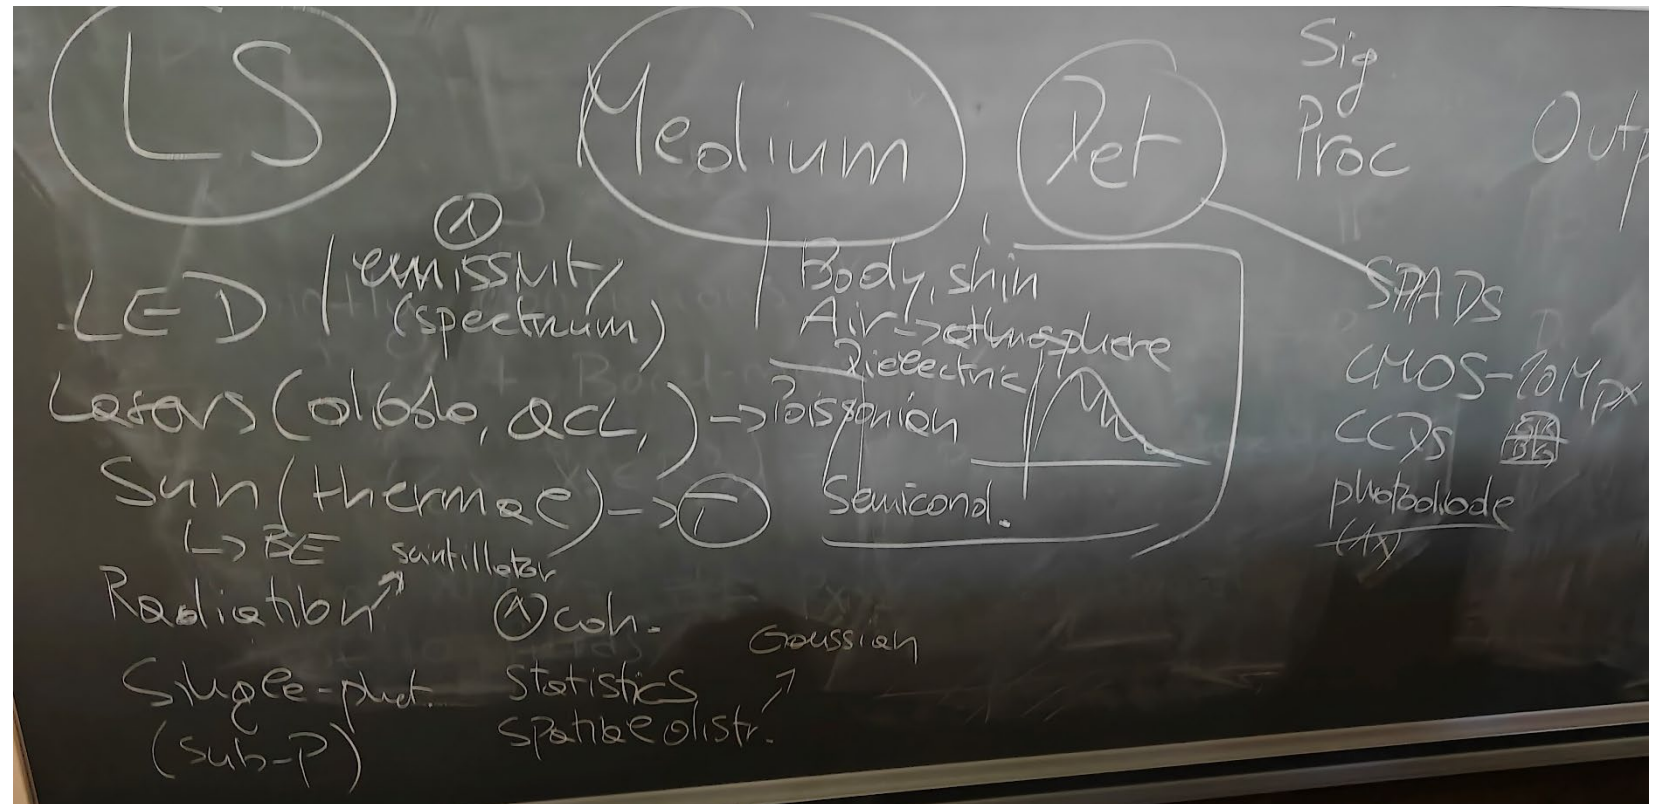 LS
Medium
Det
Sig
Proc
Outp
λ
LED
emissivity
(spectrum)
Lasers (diode, QCL, ) → Poissonian
Sun (thermal) → T
↳ BE
scintillator
Radiation
Single-phot.
(sub-P)
λ coh.
Statistics
spatial distr.
Gaussian
Body, skin
Air → athmosphere
Dielectric
Semicond.
SPADS
CMOS - 20Mpx
CCDs
photodiode
(1x)